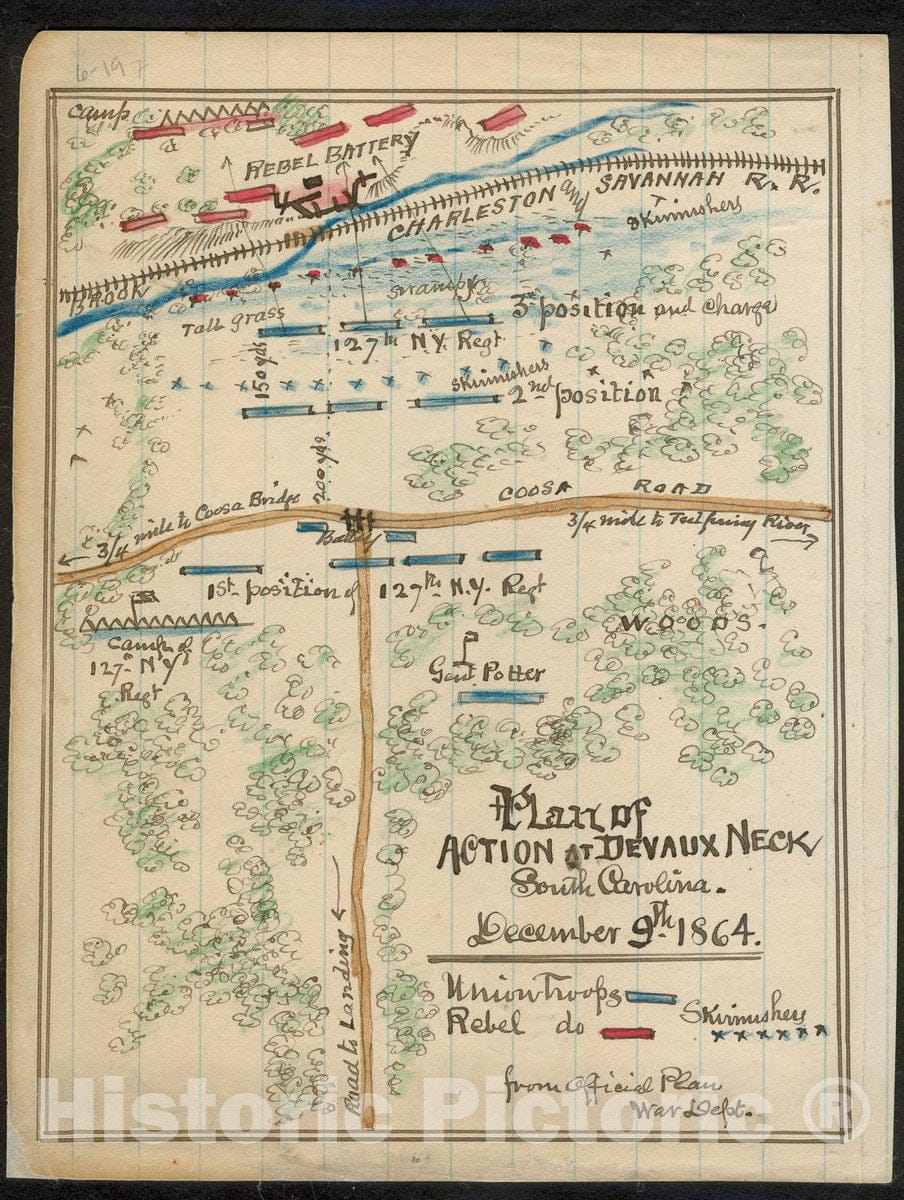 6-197
Camp
REBEL BATTERY
CHARLESTON and SAVANNAH R. R.
Skirmishers
BROOK
Tall Grass
Swamp
3d position and charge
127th N.Y. Regt
150 yds
Skirmishers
2nd position
200 yds.
COOSA ROAD
3/4 mile to Coosa Bridge
3/4 mile to Tulifinny River
Battery
1st position of 127th N.Y. Regt
Camp of
127th N Y
Regt
WOODS.
Genl. Potter
Plan of
ACTION AT DEVAUX NECK
South Carolina.
December 9th 1864.
Union Troops
Rebel do
Skirmishers
Road to Landing
from Official Plan
War Dept.
Historic Pictoric ®